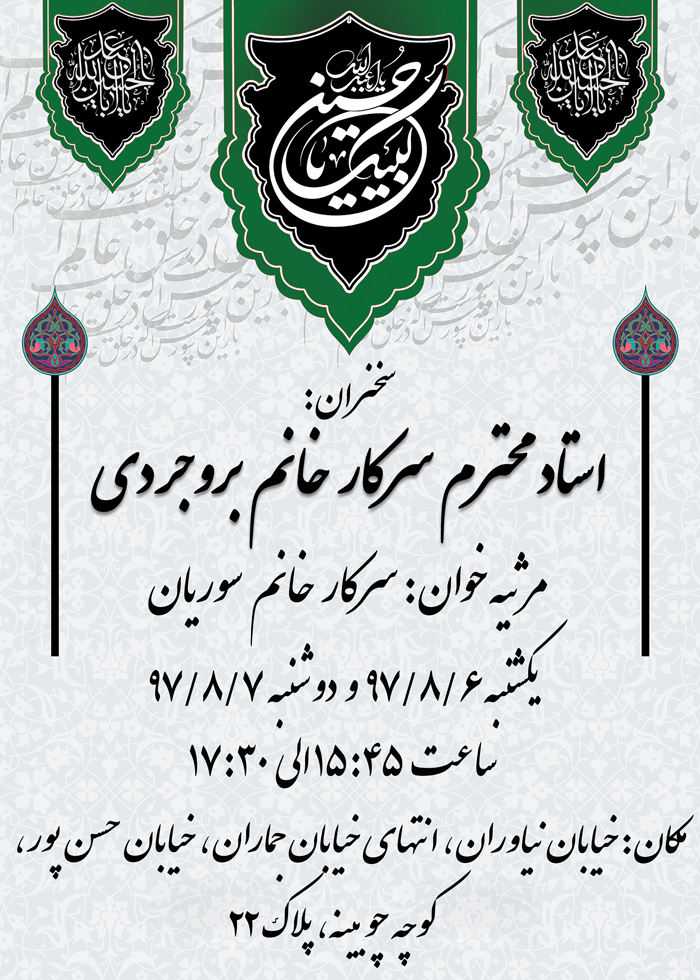 یا اباعبدالله
لبیک یا حسین
سخنران:
استاد محترم سرکار خانم بروجردی
مرثیه خوان: سرکار خانم سوریان
یکشنبه ۹۷/۸/۶ و دوشنبه ۹۷/۸/۷
ساعت ۱۵:۴۵ الی ۱۷:۳۰
مکان: خیابان نیاوران، انتهای خیابان جماران، خیابان حسن پور،
کوچه چوبینه، پلاک ۲۲